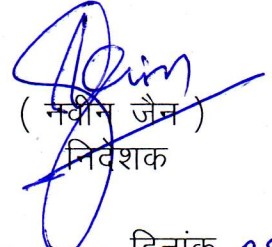 ( नवीन जैन )
निदेशक
दिनांक